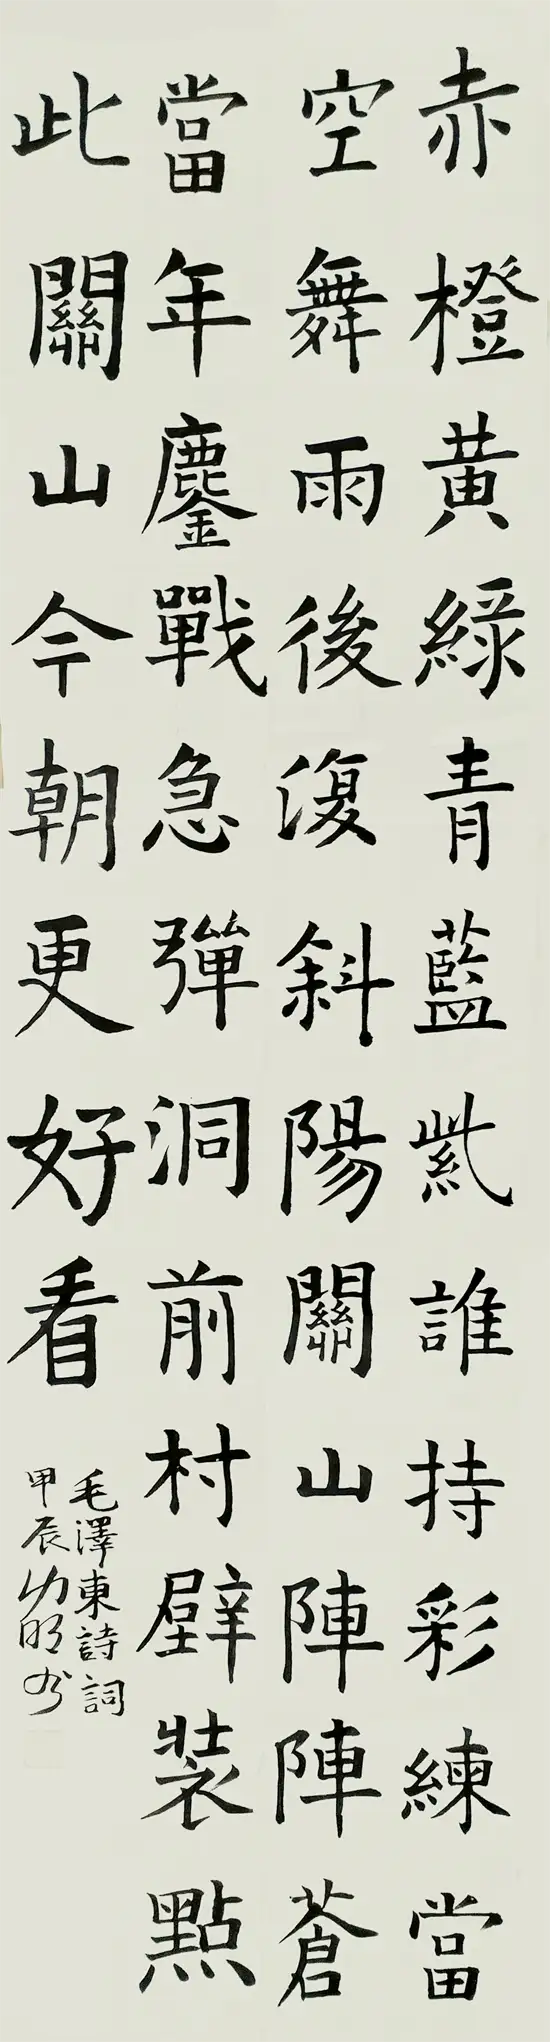 赤橙黃綠青藍紫誰持彩練當
空舞雨後復斜陽關山陣陣蒼
當年鏖戰急彈洞前村壁裝點
此關山今朝更好看
毛澤東詩詞
甲辰